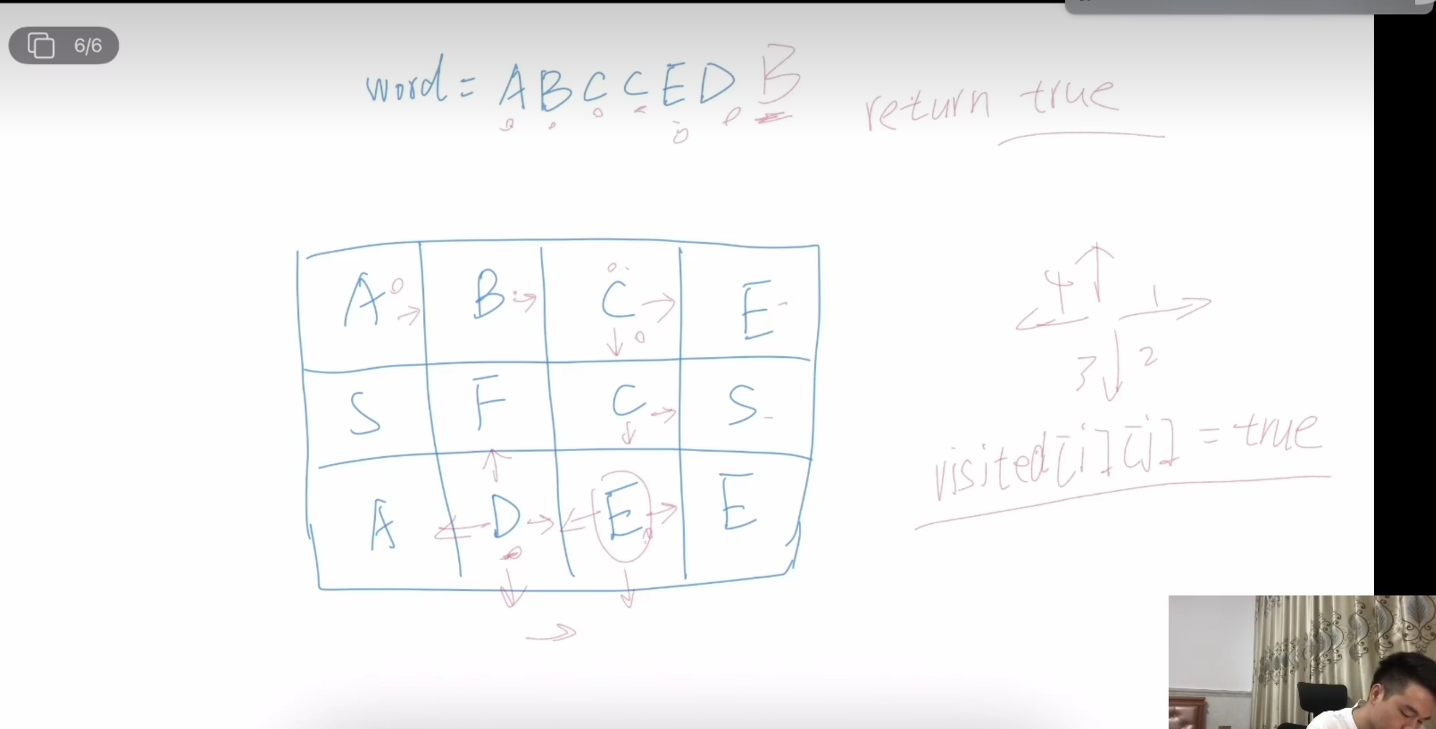 6/6
word = A B C C E D B
return true
A B C E
S F C S
A D E E
4 1
3 2
visited[i][j] = true